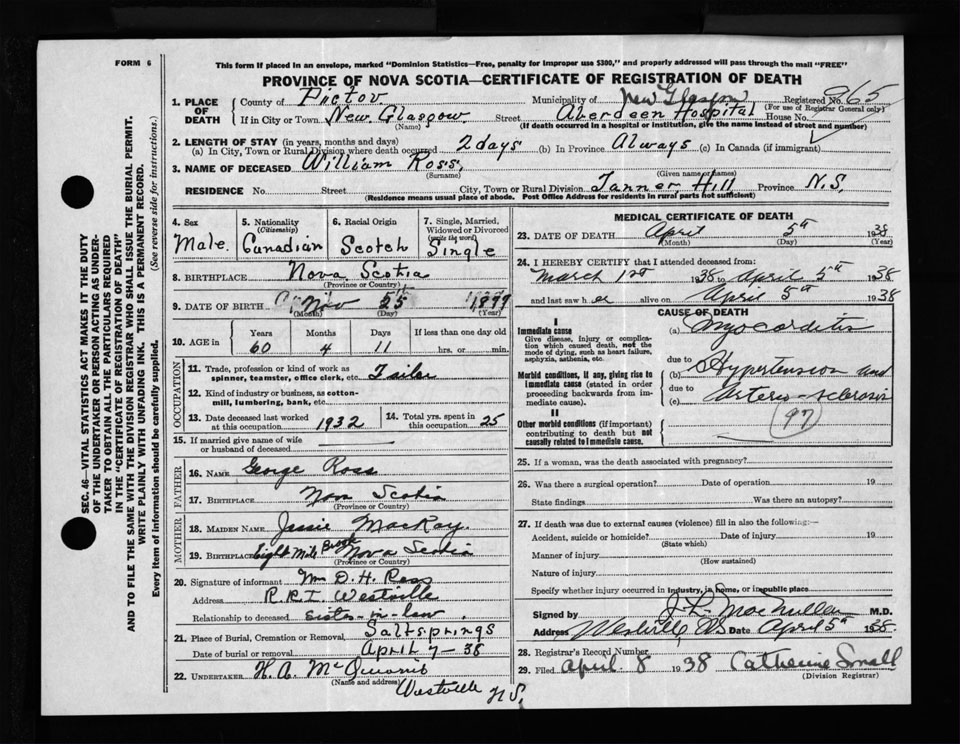 FORM 6
This form if placed in an envelope, marked "Dominion Statistics—Free, penalty for improper use $300," and properly addressed will pass through the mail "FREE"
PROVINCE OF NOVA SCOTIA—CERTIFICATE OF REGISTRATION OF DEATH
1. PLACE OF DEATH
County of Pictou Municipality of New Glasgow Registered No. 965
(For use of Registrar General only)
If in City or Town New Glasgow Street Aberdeen Hospital House No.
(Name) (If death occurred in a hospital or institution, give the name instead of street and number)
2. LENGTH OF STAY (in years, months and days)
(a) In City, Town or Rural Division where death occurred 2 days (b) In Province Always (c) In Canada (if immigrant)
3. NAME OF DECEASED William Ross,
(Surname) (Given name or names)
RESIDENCE No. Street City, Town or Rural Division Tanner Hill Province N.S.
(Residence means usual place of abode. Post Office Address for residents in rural parts not sufficient)
4. Sex Male.
5. Nationality (Citizenship) Canadian
6. Racial Origin Scotch
7. Single, Married, Widowed or Divorced (write the word) Single
8. BIRTHPLACE Nova Scotia
(Province or Country)
9. DATE OF BIRTH Nov 25
(Month) (Day) (Year)
10. AGE in Years Months Days If less than one day old
60 4 11 hrs. or min.
OCCUPATION
11. Trade, profession or kind of work as spinner, teamster, office clerk, etc. Tailor
12. Kind of industry or business, as cotton-mill, lumbering, bank, etc.
13. Date deceased last worked at this occupation 1932
14. Total yrs. spent in this occupation 25
15. If married give name of wife or husband of deceased
FATHER
16. NAME George Ross
17. BIRTHPLACE Nova Scotia
(Province or Country)
MOTHER
18. MAIDEN NAME Jessie MacKay.
19. BIRTHPLACE Eight Mile Brook Nova Scotia
(Province or Country)
20. Signature of informant Wm D. H. Ross
Address R.R.I. Westville
Relationship to deceased sister-in-law,
21. Place of Burial, Cremation or Removal Saltsprings
Date of burial or removal April 7-38
22. UNDERTAKER H. A. McQuarrie
(Name and address)
Westville N.S.
MEDICAL CERTIFICATE OF DEATH
23. DATE OF DEATH April 5th 1938
(Month) (Day) (Year)
24. I HEREBY CERTIFY that I attended deceased from:
March 1st 1938 to April 5th 1938
and last saw h er alive on April 5th 1938
CAUSE OF DEATH
I
Immediate cause
Give disease, injury or complication which caused death, not the mode of dying, such as heart failure, asphyxia, asthenia, etc.
(a) Myocarditis
due to
Morbid conditions, if any, giving rise to immediate cause (stated in order proceeding backwards from immediate cause).
(b) Hypertension and
due to
(c) Arterio-sclerosis
97
II
Other morbid conditions (if important) contributing to death but not causally related to immediate cause.
25. If a woman, was the death associated with pregnancy?
26. Was there a surgical operation? Date of operation 19
State findings Was there an autopsy?
27. If death was due to external causes (violence) fill in also the following:—
Accident, suicide or homicide? Date of injury 19
(State which)
Manner of injury
(How sustained)
Nature of injury
Specify whether injury occurred in industry, in home, or in public place
Signed by J. L. MacMillan M.D.
Address Westville NS Date April 5th 1938.
28. Registrar's Record Number
29. Filed April 8 1938 Catherine Small
(Division Registrar)
SEC. 46—VITAL STATISTICS ACT MAKES IT THE DUTY
OF THE UNDERTAKER OR PERSON ACTING AS UNDER-
TAKER TO OBTAIN ALL THE PARTICULARS REQUIRED
IN THE "CERTIFICATE OF REGISTRATION OF DEATH"
AND TO FILE THE SAME WITH THE DIVISION REGISTRAR WHO SHALL ISSUE THE BURIAL PERMIT.
WRITE PLAINLY WITH UNFADING INK. THIS IS A PERMANENT RECORD.
Every item of information should be carefully supplied. (See reverse side for instructions.)